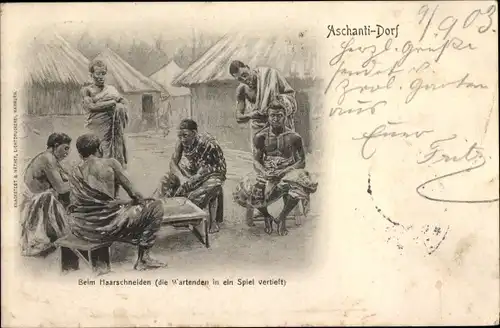 Aschanti-Dorf
9/9 03
Herzl. Grüße
sendet
Zool. Garten
aus
Euer
Fritz
KNACKSTEDT & NÄTHER, LICHTDRUCKEREI, HAMBURG.
Beim Haarschneiden (die Wartenden in ein Spiel vertieft)